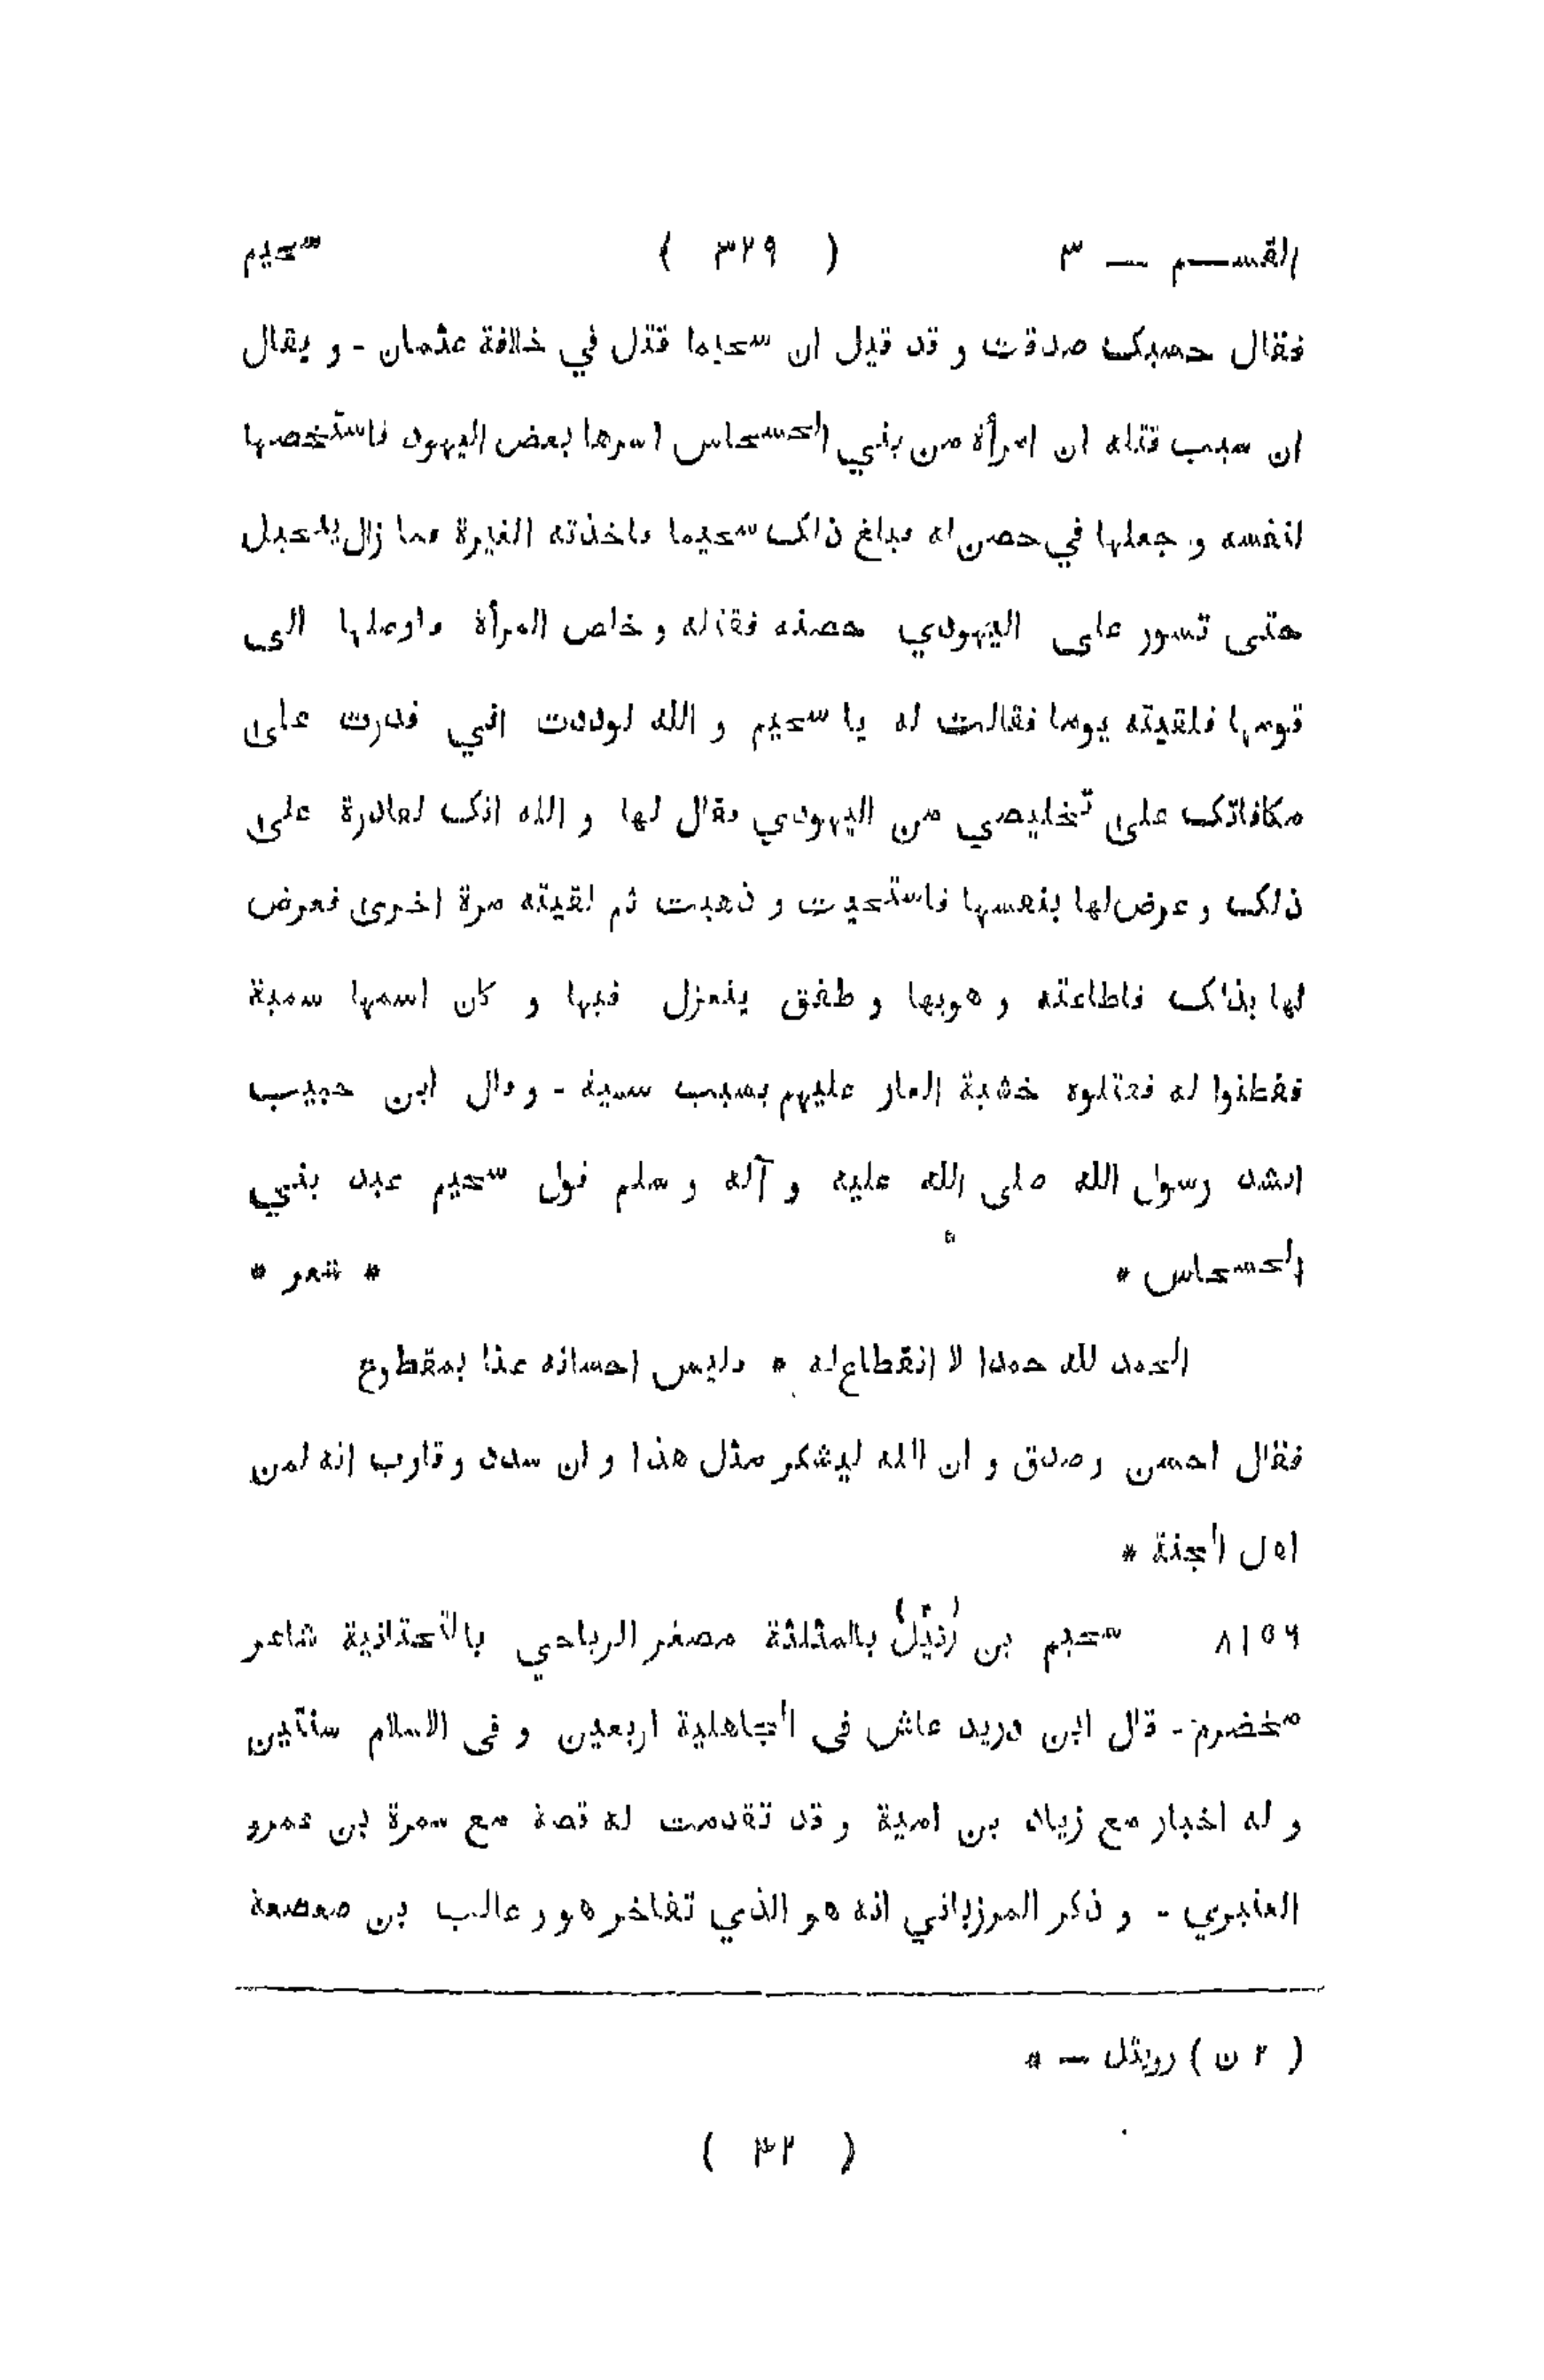 القسم — ٣ ( ٣٢٩ ) سحيم
فقال حسبك صدقت و قد قيل ان سحيما قتل في خلافة عثمان - و يقال
ان سبب قتله ان امرأة من بني الحسحاس اسرها بعض اليهود فاستخصها
لنفسه و جعلها في حصن له فبلغ ذلك سحيما فاخذته الغيرة فما زال يتحيل
حتى تسور على اليهودي حصنه فقتله و خلص المرأة فاوصلها الى
قومها فلقيته يوما فقالت له يا سحيم و الله لوددت اني قدرت على
مكافاتك على تخليصي من اليهودي فقال لها و الله انك لقادرة على
ذلك و عرض لها بنفسها فاستحيت و ذهبت ثم لقيته مرة اخرى فعرض
لها بذلك فاطاعته و هويها و طفق يتغزل فيها و كان اسمها سمية
ففطنوا له فقتلوه خشية العار عليهم بسبب سمية - و قال ابن حبيب
انشد رسول الله صلى الله عليه و آله و سلم قول سحيم عبد بني
الحسحاس * * شعر *
الحمد لله حمدا لا انقطاع له * فليس احسانه عنا بمقطوع
فقال احسن و صدق و ان الله ليشكر مثل هذا و ان سدد و قارب انه لمن
اهل الجنة *
٨١٥٦ سحيم بن (رُثَيْل) بالمثلثة مصغر الرياحي بالتحتانية شاعر
مخضرم - قال ابن دريد عاش فى الجاهلية اربعين و فى الاسلام ستين
و له اخبار مع زياد بن امية و قد تقدمت له قصة مع سمرة بن عمرو
العنبري - و ذكر المرزباني انه هو الذي تفاخر هو و غالب بن صعصعة
( ٢ ن ) رويثل — *
( ٣٢ )